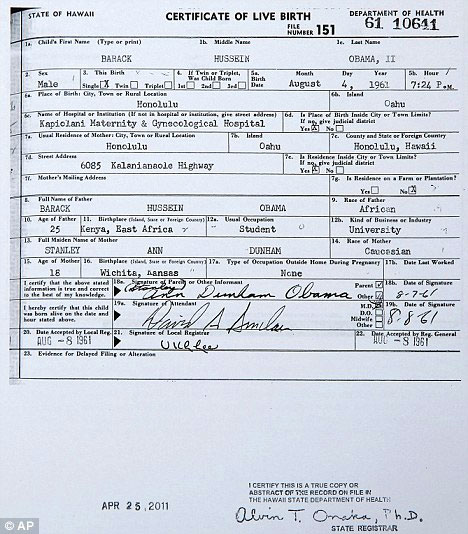 STATE OF HAWAII
CERTIFICATE OF LIVE BIRTH
DEPARTMENT OF HEALTH
FILE NUMBER 151
61 10641
1a. Child's First Name (Type or print)
1b. Middle Name
1c. Last Name
BARACK HUSSEIN OBAMA, II
2. Sex
3. This Birth
4. If Twin or Triplet, Was Child Born
5a. Birth Date
Month Day Year
5b. Hour
Male
Single X Twin Triplet
1st 2nd 3rd
August 4, 1961
7:24 P.M.
6a. Place of Birth: City, Town or Rural Location
6b. Island
Honolulu Oahu
6c. Name of Hospital or Institution (If not in hospital or institution, give street address)
6d. Is Place of Birth Inside City or Town Limits? If no, give judicial district
Kapiolani Maternity & Gynecological Hospital
Yes X No
7a. Usual Residence of Mother: City, Town or Rural Location
7b. Island
7c. County and State or Foreign Country
Honolulu Oahu Honolulu, Hawaii
7d. Street Address
7e. Is Residence Inside City or Town Limits? If no, give judicial district
6085 Kalanianaole Highway
Yes X No
7f. Mother's Mailing Address
7g. Is Residence on a Farm or Plantation?
Yes No X
8. Full Name of Father
9. Race of Father
BARACK HUSSEIN OBAMA African
10. Age of Father
11. Birthplace (Island, State or Foreign Country)
12a. Usual Occupation
12b. Kind of Business or Industry
25 Kenya, East Africa Student University
13. Full Maiden Name of Mother
14. Race of Mother
STANLEY ANN DUNHAM Caucasian
15. Age of Mother
16. Birthplace (Island, State or Foreign Country)
17a. Type of Occupation Outside Home During Pregnancy
17b. Date Last Worked
18 Wichita, Kansas None
I certify that the above stated information is true and correct to the best of my knowledge.
18a. Signature of Parent or Other Informant
Parent
Other
18b. Date of Signature
(Stanley) Ann Dunham Obama
8-7-61
I hereby certify that this child was born alive on the date and hour stated above.
19a. Signature of Attendant
M.D.
D.O.
Midwife
Other
19b. Date of Signature
David A Sinclair
8-8-61
20. Date Accepted by Local Reg.
21. Signature of Local Registrar
22. Date Accepted by Reg. General
AUG -8 1961
U K L Lee
AUG -8 1961
23. Evidence for Delayed Filing or Alteration
APR 25, 2011
I CERTIFY THIS IS A TRUE COPY OR
ABSTRACT OF THE RECORD ON FILE IN
THE HAWAII STATE DEPARTMENT OF HEALTH
Alvin T. Onaka, Ph.D.
STATE REGISTRAR
© AP